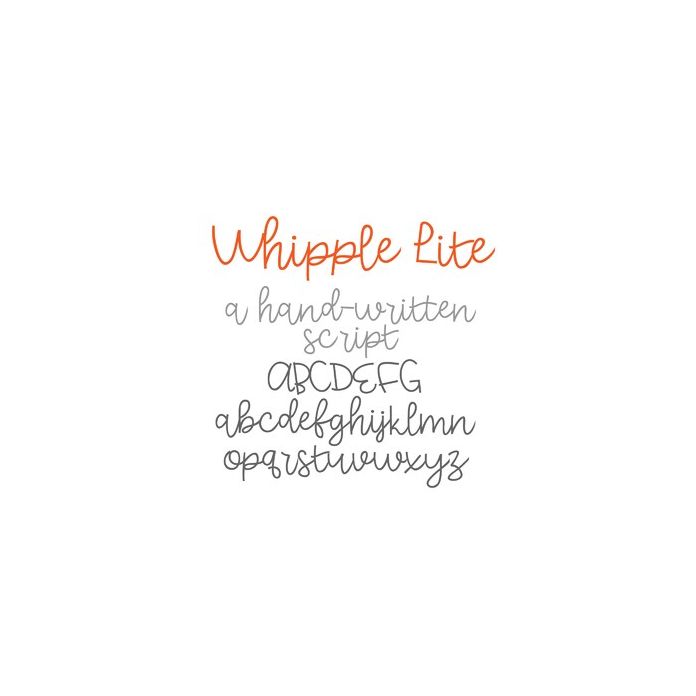 Whipple Lite
a hand-written
script
ABCDEFG
abcdefghijklmn
opqrstuvwxyz